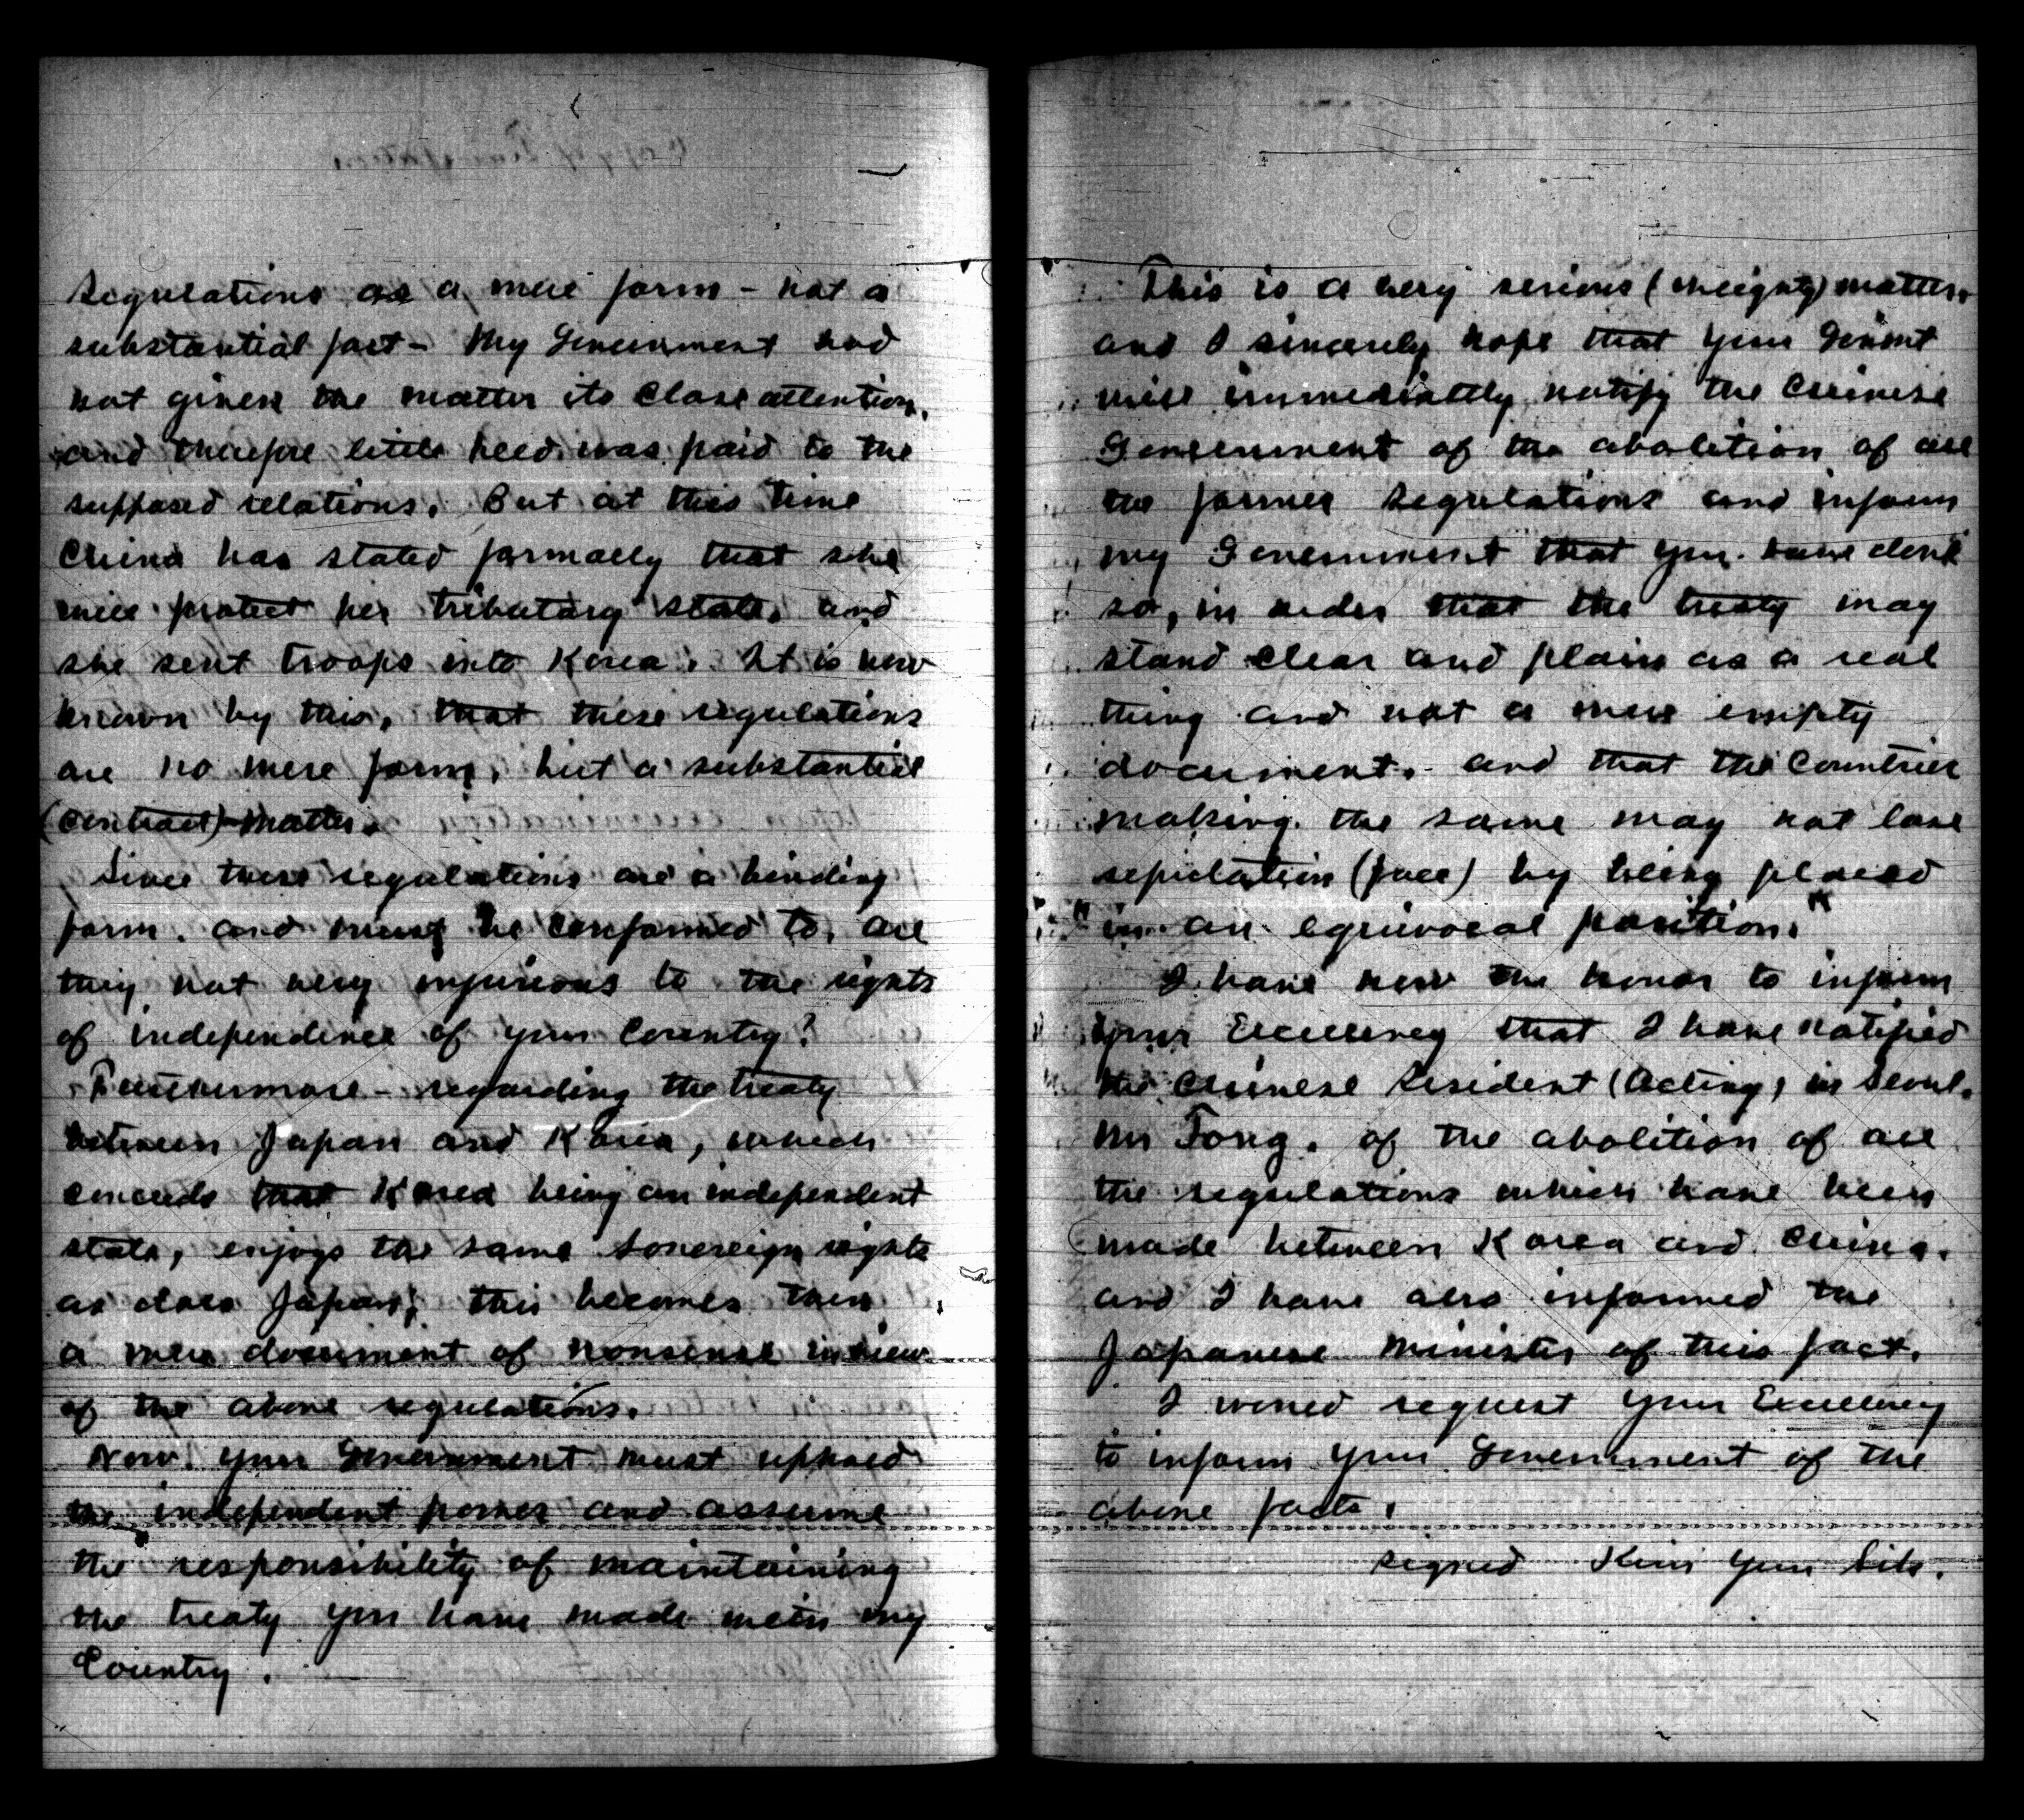 regulations as a mere form - not a
substantial fact - My Government had
not given the matter its close attention,
and therefore little heed was paid to the
supposed relations. But at this time
China has stated formally that she
will protect her tributary state, and
she sent troops into Korea. It is now
known by this, that these regulations
are no mere form, but a substantial
(contract) matter.
Since these regulations are a binding
form, and must be conformed to, are
they not very injurious to the rights
of independence of your Country?
Furthermore - regarding the treaty
between Japan and Korea, which
concedes that Korea being an independent
state, enjoys the same sovereign rights
as does Japan; this becomes then
a mere document of nonsense in view
of the above regulations.
Now, your Government must uphold
the independent power and assume
the responsibility of maintaining
the treaty you have made with my
Country.
This is a very serious (weighty) matter,
and I sincerely hope that your Govmnt
will immediately notify the Chinese
Government of the abolition of all
the former regulations and inform
my Government that you have done
so, in order that the treaty may
stand clear and plain as a real
thing and not a mere empty
document, - and that the Countries
making the same may not lose
reputation (face) by being placed
"in an equivocal position."
I have now the honor to inform
Your Excellency that I have notified
the Chinese Resident (Acting) in Seoul,
Mr Tong, of the abolition of all
the regulations which have been
made between Korea and China,
and I have also informed the
Japanese Minister of this fact.
I would request Your Excellency
to inform Your Government of the
above facts.
signed Kim Yun Sik.